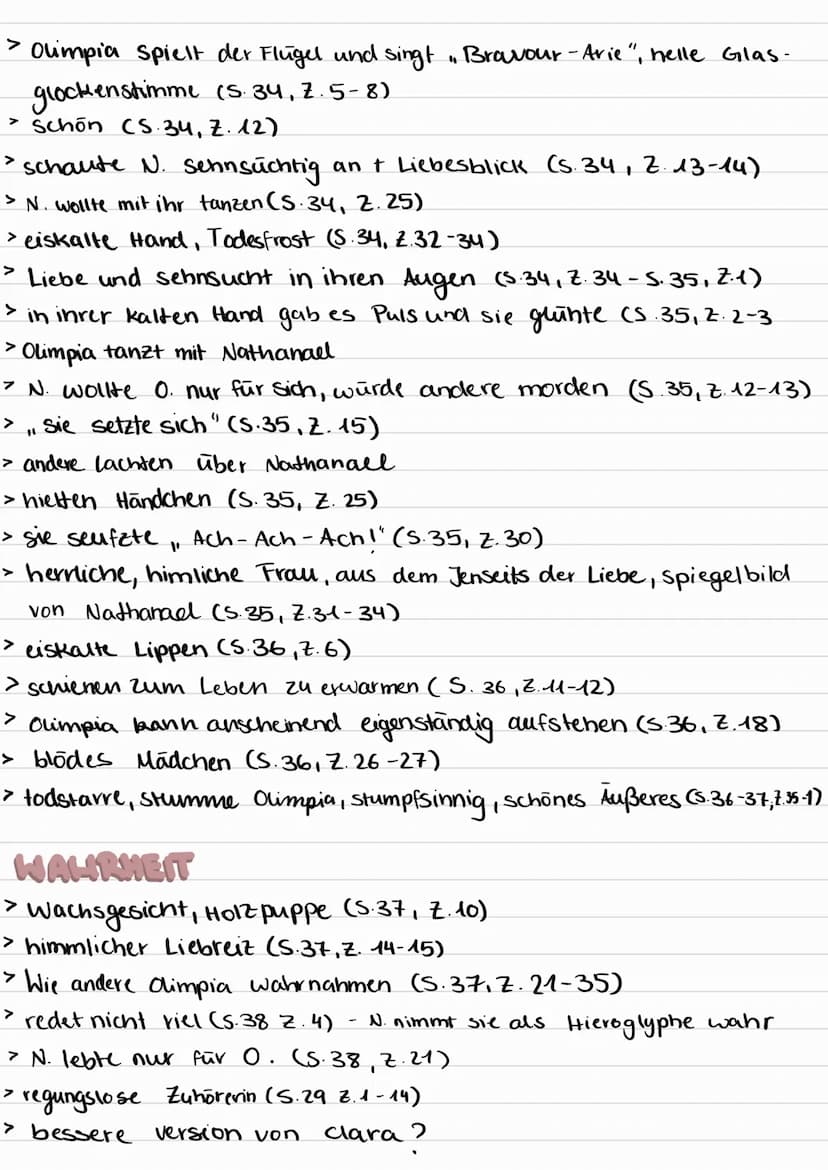 > Olimpia spielt der Flügel und singt „Bravour-Arie", helle Glas-
glockenstimme (S. 34, Z. 5-8)
> schön (S. 34, Z. 12)
> schaute N. sehnsüchtig an + Liebesblick (S. 34, Z. 13-14)
> N. wollte mit ihr tanzen (S. 34, Z. 25)
> eiskalte Hand, Todesfrost (S. 34, Z. 32-34)
> Liebe und sehnsucht in ihren Augen (S. 34, Z. 34 - S. 35, Z. 1)
> in ihrer kalten Hand gab es Puls und sie glühte (S. 35, Z. 2-3
> Olimpia tanzt mit Nathanael
> N. wollte O. nur für sich, würde andere morden (S. 35, Z. 12-13)
> „sie setzte sich" (S. 35, Z. 15)
> andere lachten über Nathanael
> hielten Händchen (S. 35, Z. 25)
> sie seufzte „Ach-Ach-Ach!" (S. 35, Z. 30)
> herrliche, himliche Frau, aus dem Jenseits der Liebe, spiegelbild
von Nathanael (S. 35, Z. 31-34)
> eiskalte Lippen (S. 36, Z. 6)
> schienen zum Leben zu erwarmen (S. 36, Z. 11-12)
> Olimpia kann anscheinend eigenständig aufstehen (S. 36, Z. 18)
> blödes Mädchen (S. 36, Z. 26-27)
> todstarre, stumme Olimpia, stumpfsinnig, schönes Äußeres (S. 36-37, Z. 35-1)
WAHRHEIT
> Wachsgesicht, Holzpuppe (S. 37, Z. 10)
> himmlicher Liebreiz (S. 37, Z. 14-15)
> Wie andere Olimpia wahrnahmen (S. 37, Z. 21-35)
> redet nicht viel (S. 38 Z. 4) - N. nimmt sie als Hieroglyphe wahr
> N. lebte nur für O. (S. 38, Z. 21)
> regungslose Zuhörerin (S. 29 Z. 1-14)
> bessere version von Clara?